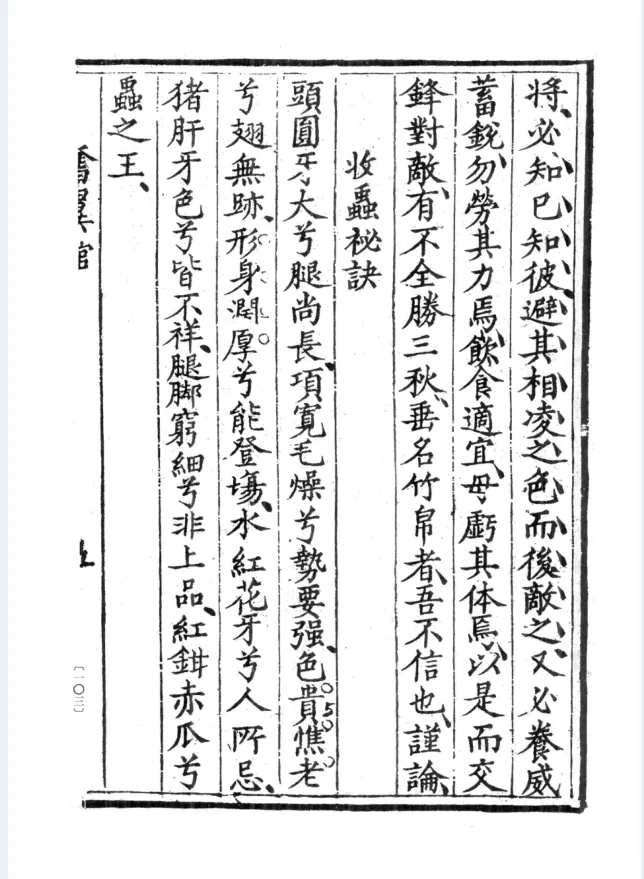 將、必、知、已、知、彼、避、其、相、凌、之、色、而、後、敵、之、又必養威
蓄銳、勿勞其力焉、飲食適宜、毋虧其体焉、以是而交
鋒對敵、有不全勝三秋、垂名竹帛者、吾不信也、謹論、
收蟲祕訣
頭圓牙大兮腿尚長、項寬毛燥兮勢要强、色貴憔老
兮翅無跡、形身濶厚兮能登塲、水紅花牙兮人所忌、
猪肝牙色兮皆不祥、腿脚窮細兮非上品、紅鉗赤瓜兮
蟲之王、
〔一〇三〕